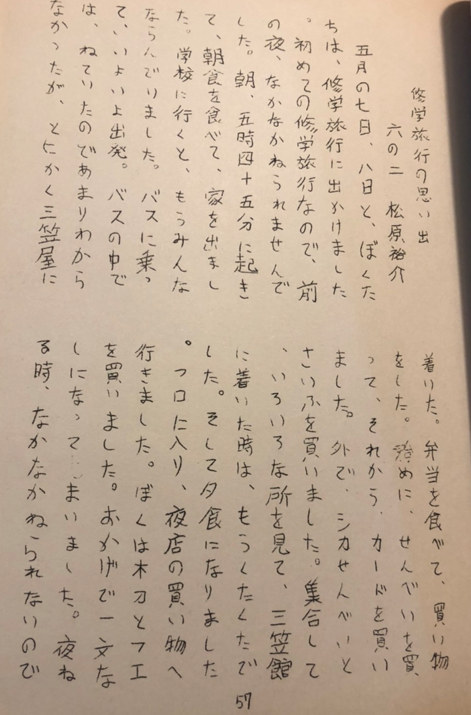 修学旅行の思い出
六の二　松原裕介
五月の七日、八日と、ぼくた
ちは、修学旅行に出かけました
。初めての修学旅行なので、前
の夜、なかなかねられませんで
した。朝、五時四十五分に起き
て、朝食を食べて、家を出まし
た。学校に行くと、もうみんな
ならんでりました。バスに乗っ
て、いよいよ出発。バスの中で
は、ねていたのであまりわから
なかったが、とにかく三笠屋に
着いた。弁当を食べて、買い物
をした。始めに、せんべいを買
って、それから、カードを買い
ました。外で、シカせんべいと
さいふを買いました。集合して
、いろいろな所を見て、三笠館
に着いた時は、もうくたくたで
した。そして夕食になりました
。フロに入り、夜店の買い物へ
行きました。ぼくは木刀とフエ
を買いました。おかげで一文な
しになってしまいました。夜ね
る時、なかなかねられないので
57